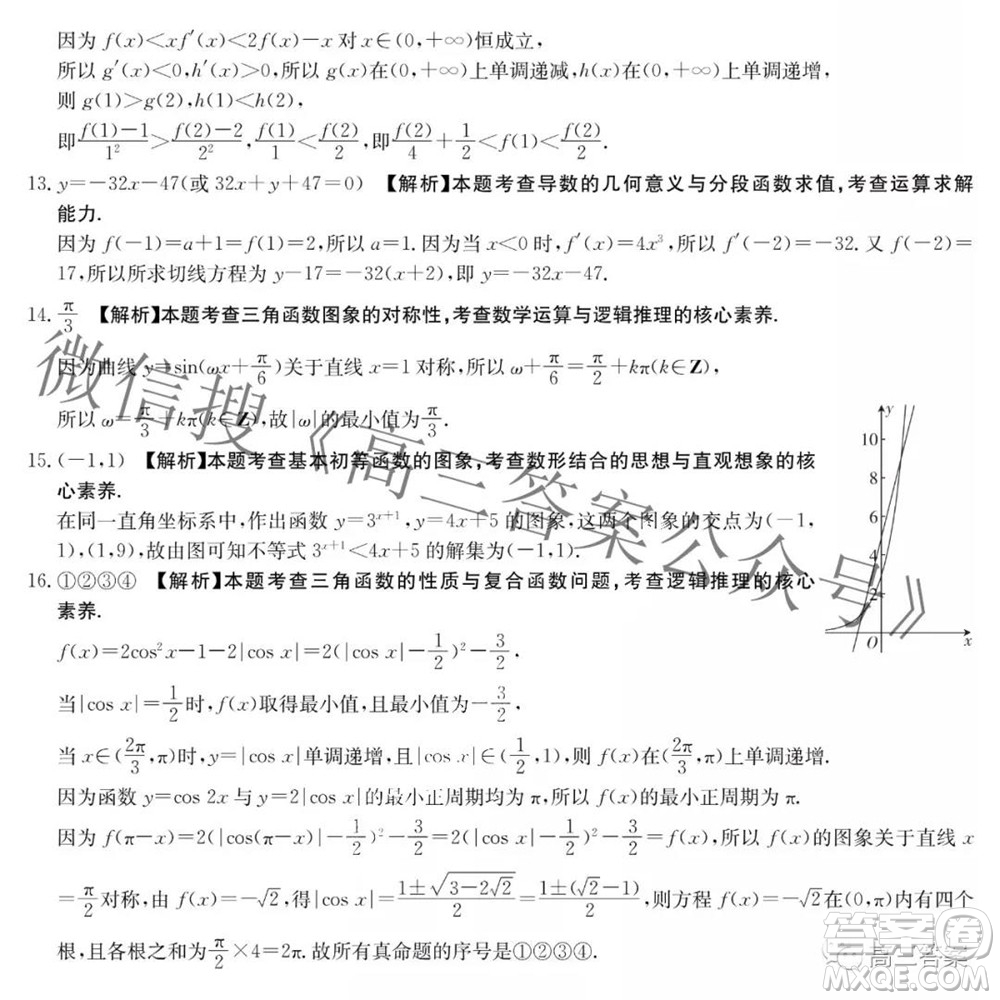 因为 f(x)<xf′(x)<2f(x)-x 对 x∈(0,+∞)恒成立,
所以 g′(x)<0,h′(x)>0,所以 g(x)在(0,+∞)上单调递减,h(x)在(0,+∞)上单调递增,
则 g(1)>g(2),h(1)<h(2),
即\frac{f(1)-1}{1^2}>\frac{f(2)-2}{2^2},\frac{f(1)}{1}<\frac{f(2)}{2},即\frac{f(2)}{4}+\frac{1}{2}<f(1)<\frac{f(2)}{2}.
13. y=-32x-47(或 32x+y+47=0) 【解析】本题考查导数的几何意义与分段函数求值,考查运算求解
能力.
因为 f(-1)=a+1=f(1)=2,所以 a=1.因为当 x<0 时,f′(x)=4x³,所以 f′(-2)=-32.又 f(-2)=
17,所以所求切线方程为 y-17=-32(x+2),即 y=-32x-47.
14. \frac{π}{3} 【解析】本题考查三角函数图象的对称性,考查数学运算与逻辑推理的核心素养.
因为曲线 y=sin(ωx+\frac{π}{6})关于直线 x=1 对称,所以 ω+\frac{π}{6}=\frac{π}{2}+kπ(k∈Z),
所以 ω=\frac{π}{3}+kπ(k∈Z),故|ω|的最小值为\frac{π}{3}.
15. (-1,1) 【解析】本题考查基本初等函数的图象,考查数形结合的思想与直观想象的核
心素养.
在同一直角坐标系中,作出函数 y=3^{x+1},y=4x+5 的图象,这两个图象的交点为(-1,
1),(1,9),故由图可知不等式 3^{x+1}<4x+5 的解集为(-1,1).
16. ①②③④ 【解析】本题考查三角函数的性质与复合函数问题,考查逻辑推理的核心
素养.
f(x)=2cos²x-1-2|cos x|=2(|cos x|-\frac{1}{2})²-\frac{3}{2}.
当|cos x|=\frac{1}{2}时,f(x)取得最小值,且最小值为-\frac{3}{2}.
当 x∈(\frac{2π}{3},π)时,y=|cos x|单调递增,且|cos x|∈(\frac{1}{2},1),则 f(x)在(\frac{2π}{3},π)上单调递增.
因为函数 y=cos 2x 与 y=2|cos x|的最小正周期均为 π,所以 f(x)的最小正周期为 π.
因为 f(π-x)=2(|cos(π-x)|-\frac{1}{2})²-\frac{3}{2}=2(|cos x|-\frac{1}{2})²-\frac{3}{2}=f(x),所以 f(x)的图象关于直线 x
=\frac{π}{2}对称,由 f(x)=-\sqrt{2},得|cos x|=\frac{1±\sqrt{3-2\sqrt{2}}}{2}=\frac{1±(\sqrt{2}-1)}{2},所以方程 f(x)=-\sqrt{2}在(0,π)内有四个
根,且各根之和为\frac{π}{2}×4=2π.故所有真命题的序号是①②③④.
y
10
8
6
4
2
O
x
微信搜《高三答案公众号》
答案圈
高三答案
MXQE.COM